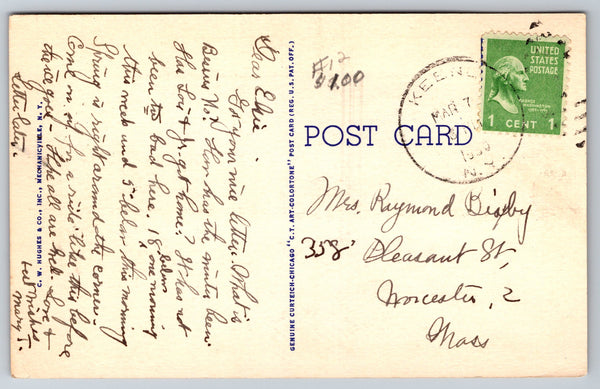 Dear Elsie:
Got your nice letter. What is
Burns No.? How has the winter been?
Has Liz & Jr. got home? It has not
been too bad here. 18 below one morning
this week and 5° below this morning
Spring is right around the corner
Come on up for a ride like this before
the ice goes - Hope all are well. Love &
best wishes
Mary J.
Letter later.
C. W. HUGHES & CO., INC., MECHANICVILLE, N. Y.
GENUINE CURTEICH-CHICAGO "C.T. ART-COLORTONE" POST CARD (REG. U.S. PAT. OFF.)
#12
$1.00
POST CARD
MAR 7
1939
N.Y.
UNITED
STATES
POSTAGE
1 CENT 1
Mrs. Raymond Bixby
358 Pleasant St,
Worcester, 2
Mass